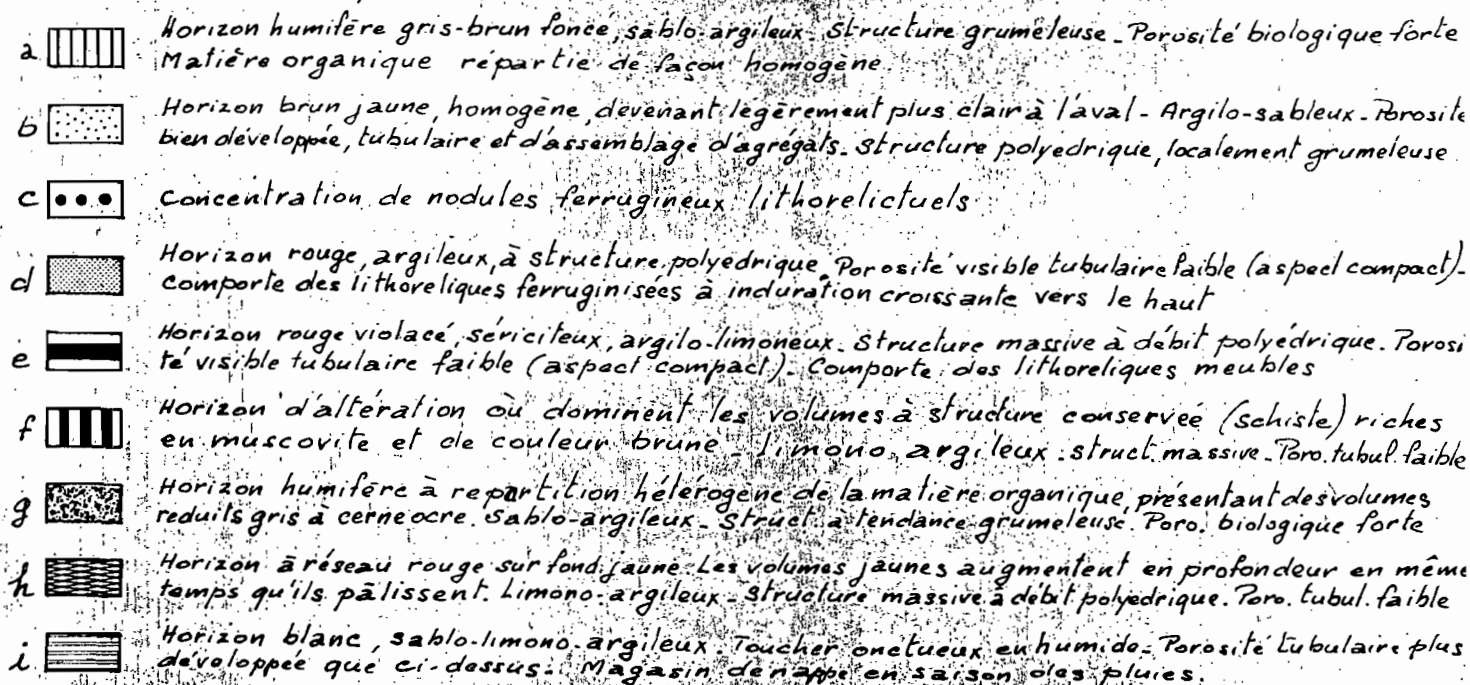 a Horizon humifère gris-brun foncé, sablo-argileux. Structure grumeleuse. Porosité biologique forte
Matière organique répartie de façon homogène
b Horizon brun jaune, homogène, devenant légèrement plus clair à l'aval - Argilo-sableux. Porosité
bien développée, tubulaire et d'assemblage d'agrégats. Structure polyedrique, localement grumeleuse
c Concentration de nodules ferrugineux lithorelictuels
d Horizon rouge, argileux, à structure polyedrique. Porosité visible tubulaire faible (aspect compact).
Comporte des lithoreliques ferruginisées à induration croissante vers le haut
e Horizon rouge violacé, sériciteux, argilo-limoneux. Structure massive à débit polyédrique. Porosi
té visible tubulaire faible (aspect compact). Comporte des lithoreliques meubles
f Horizon d'altération où dominent les volumes à structure conservée (schiste) riches
en muscovite et de couleur brune - limono argileux. struct. massive. Poro. tubul. faible
g Horizon humifère à repartition hétérogène de la matière organique, présentant des volumes
reduits gris à cerne ocre. Sablo-argileux. Struct. à tendance grumeleuse. Poro. biologique forte
h Horizon à réseau rouge sur fond jaune. Les volumes jaunes augmentent en profondeur en même
temps qu'ils pâlissent. Limono-argileux. Structure massive à débit polyedrique. Poro. tubul. faible
i Horizon blanc, sablo-limono-argileux. Toucher onctueux en humide. Porosité tubulaire plus
développée que ci-dessus. Magasin de nappe en saison des pluies.